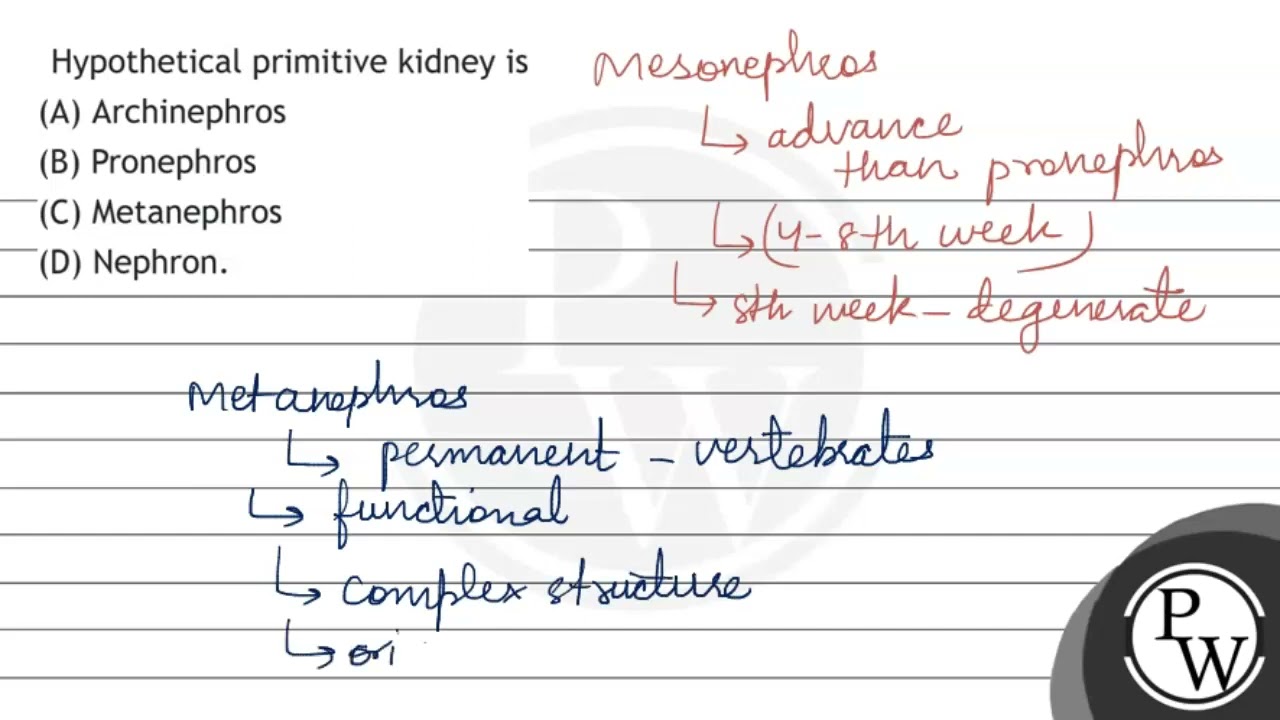 Hypothetical primitive kidney is
(A) Archinephros
(B) Pronephros
(C) Metanephros
(D) Nephron.
Mesonephros
↳ advance
than pronephros
↳ (4-8th week)
↳ 8th week - degenerate
Metanephros
↳ permanent - vertebrates
↳ functional
↳ complex structure
↳ ori
P
W
P
W